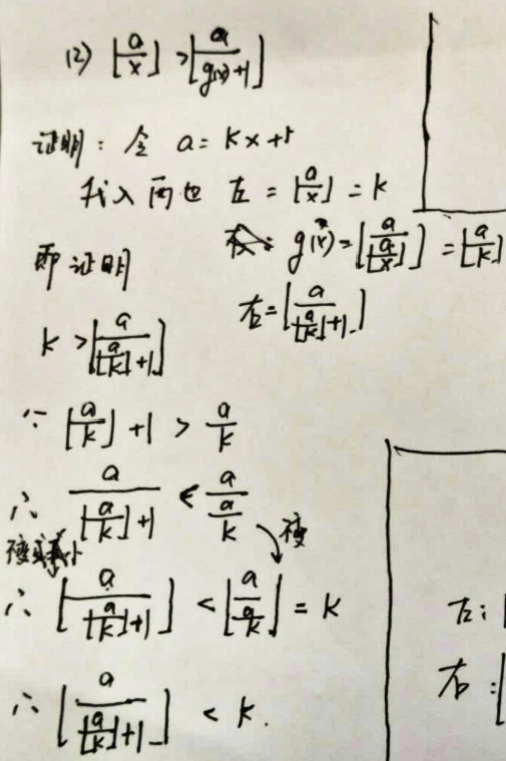 (2) ⌊a/x⌋ > ⌊a/(g(x)+1)⌋
证明: 令 a = kx + r
代入两边 左 = ⌊a/x⌋ = k
g(x) = ⌊a/⌊a/x⌋⌋ = ⌊a/k⌋
右 = ⌊a/(⌊a/k⌋+1)⌋
即证明
k > ⌊a/(⌊a/k⌋+1)⌋
∵ ⌊a/k⌋ + 1 > a/k
∴ a/(⌊a/k⌋+1) < a/(a/k)
不变
∴ ⌊a/(⌊a/k⌋+1)⌋ < ⌊a/(a/k)⌋ = k
∴ ⌊a/(⌊a/k⌋+1)⌋ < k.
左: ⌊
右: ⌊